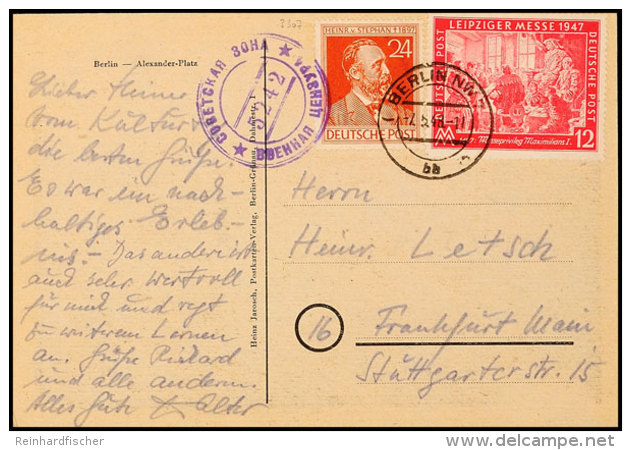 Berlin — Alexander-Platz
Lieber Heiner
vom Kultur
die besten Grüße.
Es war ein nach-
haltiges Erleb-
nis – Das andere ist
auch sehr wertvoll
für mich und regt
zu weitrem Lernen
an. Grüße
und alle anderen.
Alles Gute
Heinz Jarosch, Postkarten-Verlag, Berlin-Grünau,
СОВЕТСКАЯ ЗОНА ★ ВОЕННАЯ ЦЕНЗУРА ★
5242
HEINR. V. STEPHAN † 1897
24
DEUTSCHE POST
LEIPZIGER MESSE 1947
DEUTSCHE POST
DEUTSCHE POST
Messeprivileg Maximilians I.
12
BERLIN NW
bb
Herrn
Heinr. Letsch
16 Frankfurt Main
Stuttgarterstr. 15
Reinhardfischer
delcampe.net